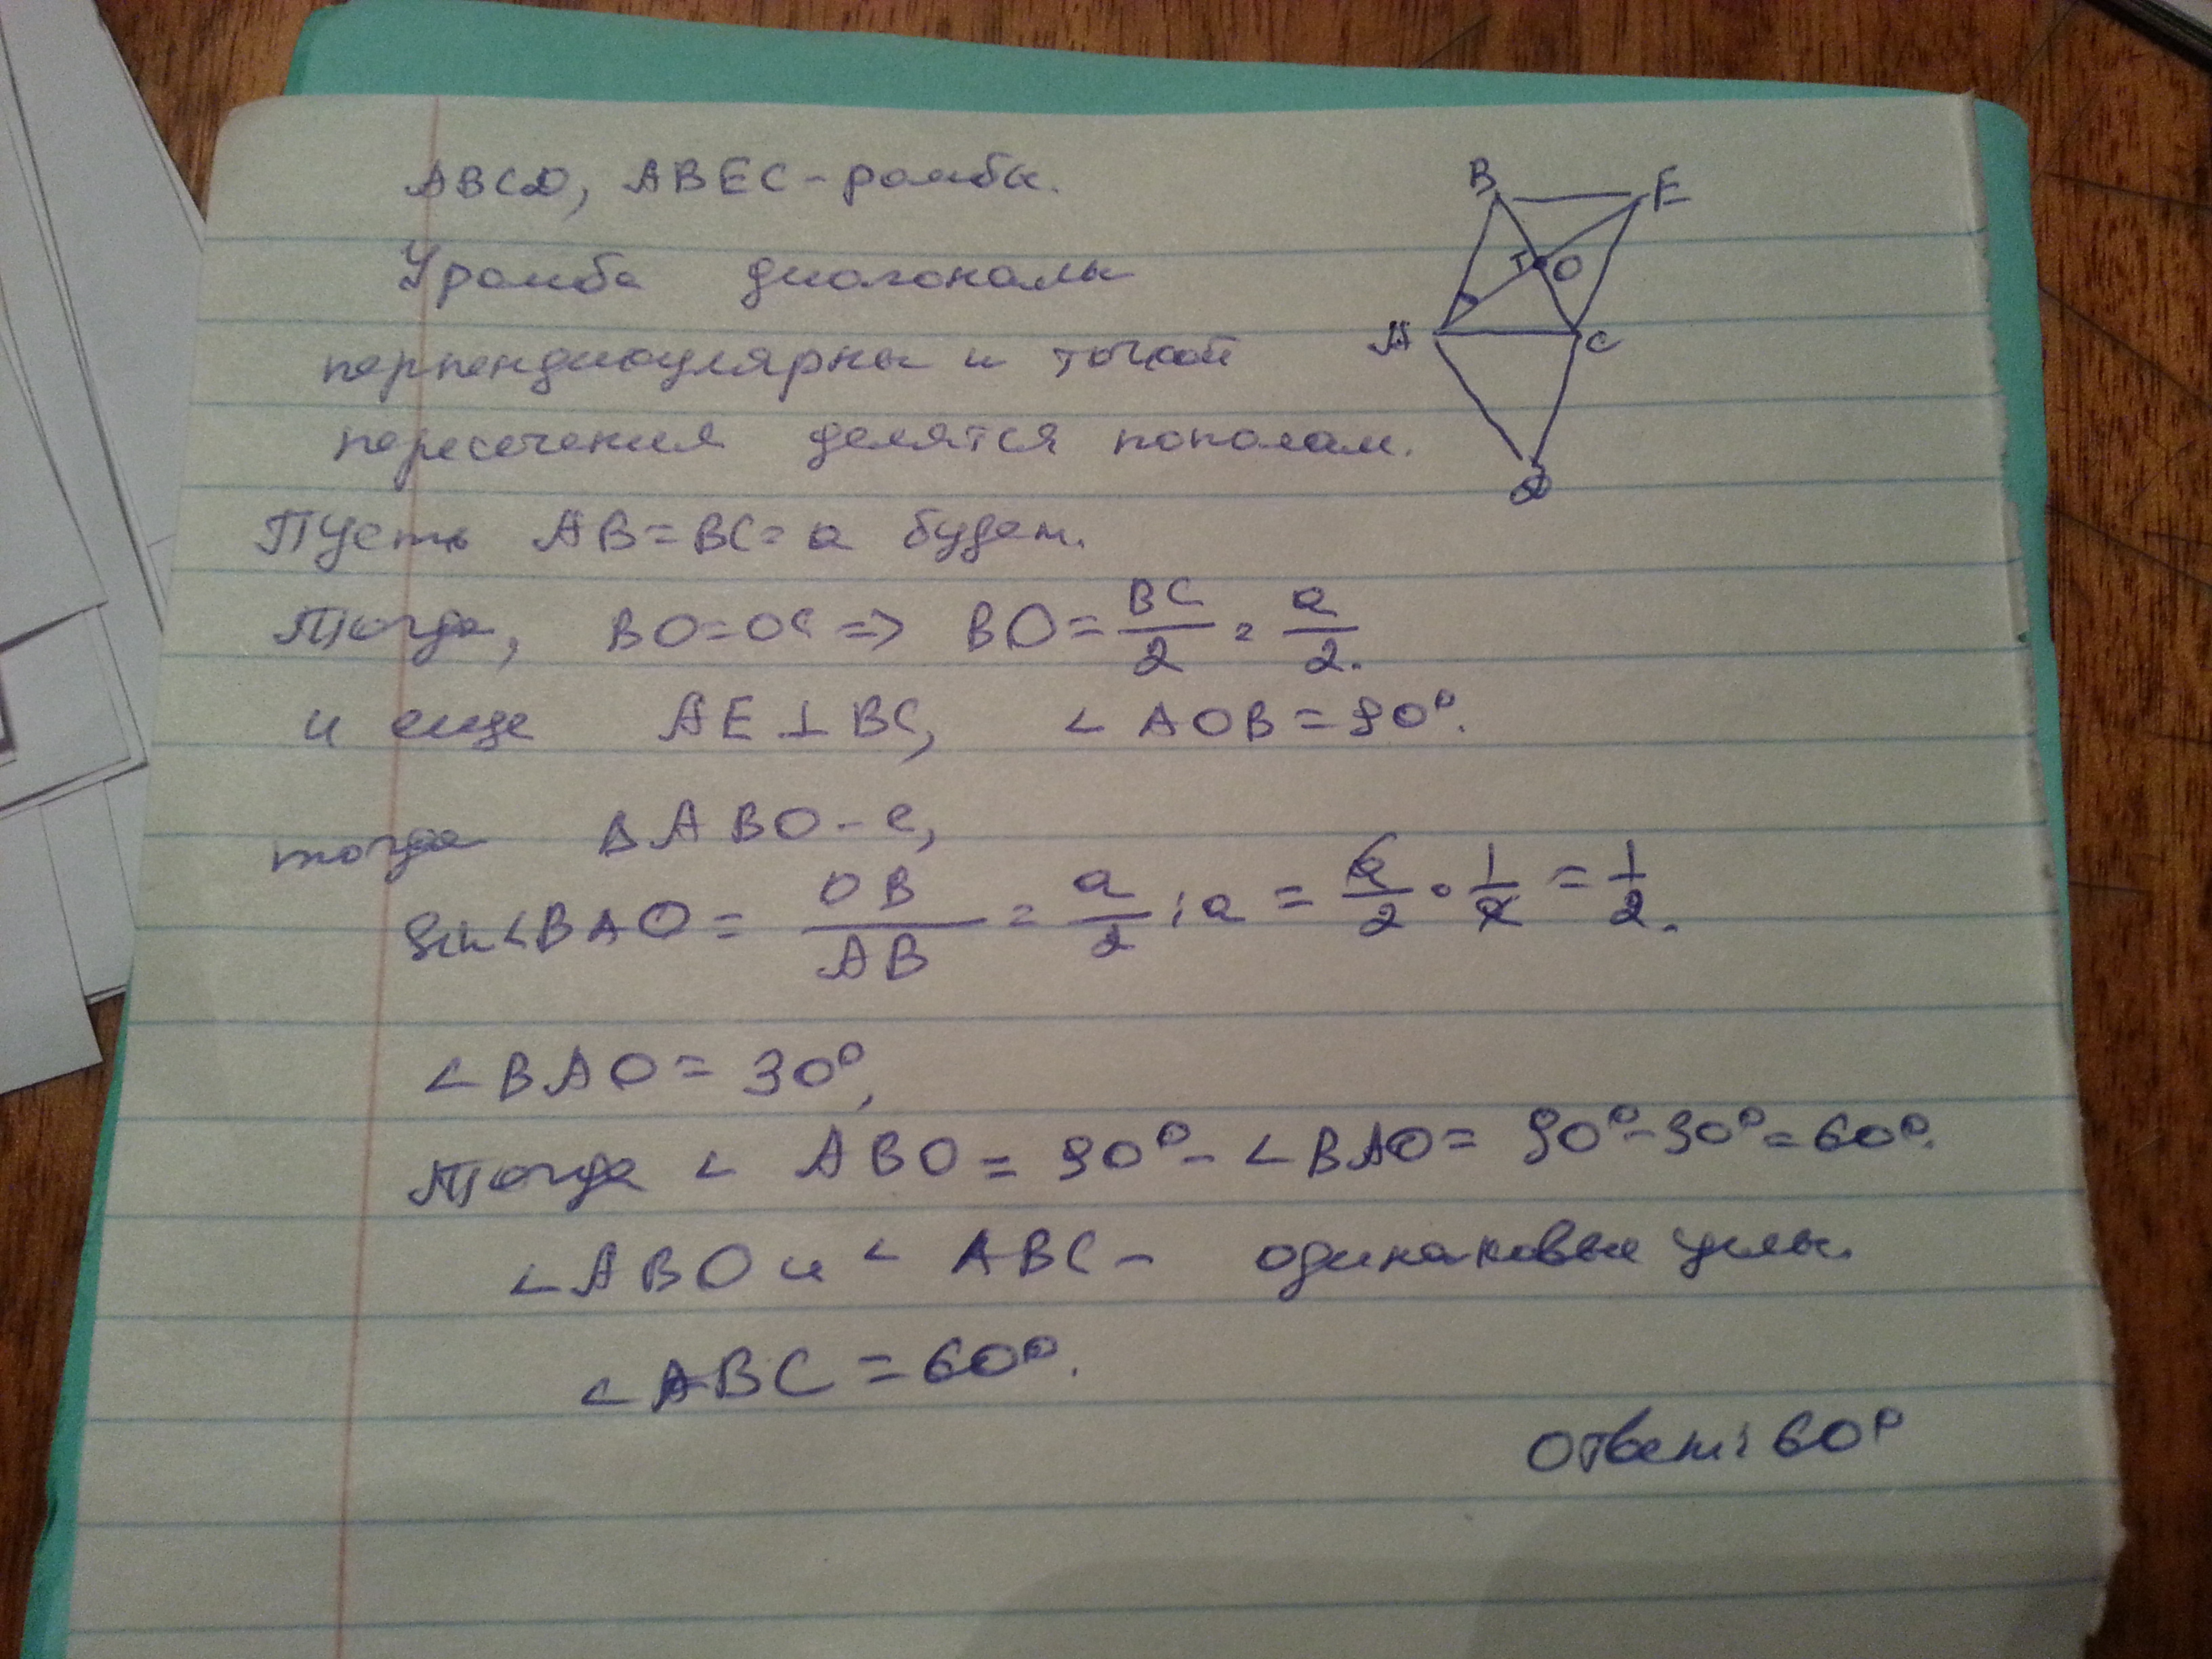 ABCD, ABEC - ромбы.
У ромба диагонали
перпендикулярны и точкой
пересечения делятся пополам.
Пусть AB = BC = a будет.
Тогда, BO = OC => BO = BC/2 = a/2.
и еще AE ⊥ BC, ∠ AOB = 90°.
тогда в ABO - e,
sin ∠BAO = OB/AB = a/2 : a = a/2 · 1/a = 1/2.
∠BAO = 30°,
Тогда ∠ ABO = 90° - ∠BAO = 90° - 30° = 60°.
∠ABO и ∠ ABC - одинаковые углы.
∠ABC = 60°.
Ответ: 60°
B
E
O
A
C
D